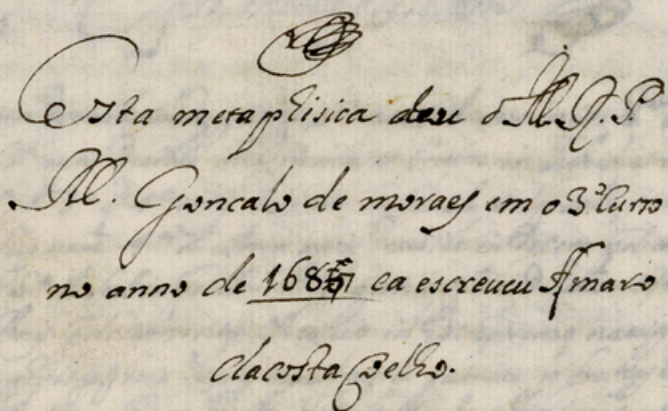 Esta metaphisica deu o M. R. P.
M. Goncalo de moraes em o 3º Curso
no anno de 1687 ea escreveu Amaro
dacosta Coelho.